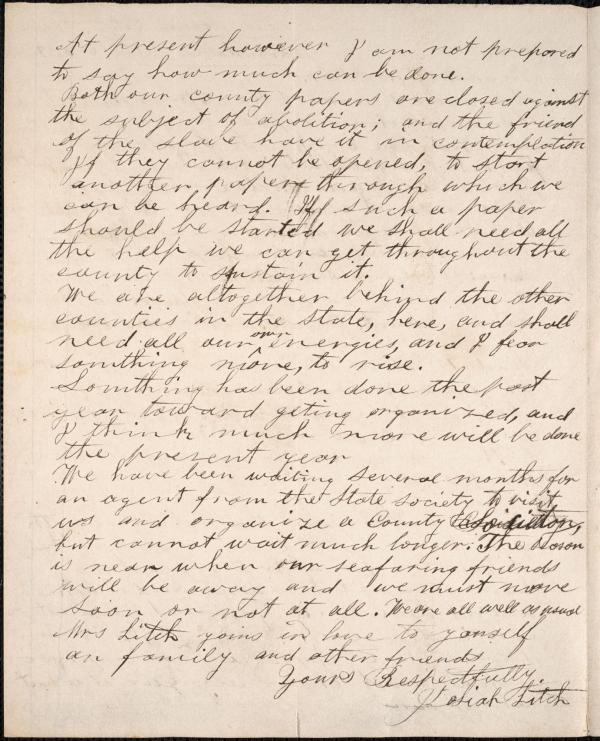 At present however I am not prepared
to say how much can be done.
Both our county papers are closed against
the subject of abolition; and the friend
of the slave have it in contemplation
If they cannot be opened, to start
another, paper through which we
can be heard. If such a paper
should be started we shall need all
the help we can get throughout the
county to sustain it.
We are altogether behind the other
counties in the state, here, and shall
need all our own energies, and I fear
somthing more, to rise.
Somthing has been done the past
year toward geting organized, and
I think much more will be done
the present year
We have been waiting several months for
an agent from the State society to visit
us and organize a County
but cannot wait much longer. The season
is near when our seafaring friends
will be away and we must move
soon or not at all. We are all well as usual
Mrs Litch yoins in love to yourself
an family and other friends
Yours Respectfully.
Josiah Litch